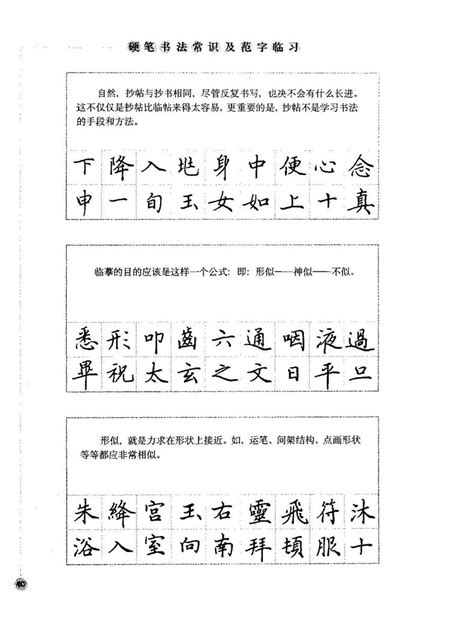 硬笔书法常识及范字临习
自然，抄帖与抄书相同，尽管反复书写，也决不会有什么长进。
这不仅仅是抄帖比临帖来得太容易，更重要的是，抄帖不是学习书法
的手段和方法。
下降入地身中便心念
申一旬玉女如上十真
临摹的目的应该是这样一个公式：即：形似——神似——不似。
悉形叩齒六通咽液過
畢祝太玄之文日平旦
形似，就是力求在形状上接近。如，运笔、间架结构、点画形状
等等都应非常相似。
朱絳宫玉右靈飛符沐
浴入室向南拜頓服十
60